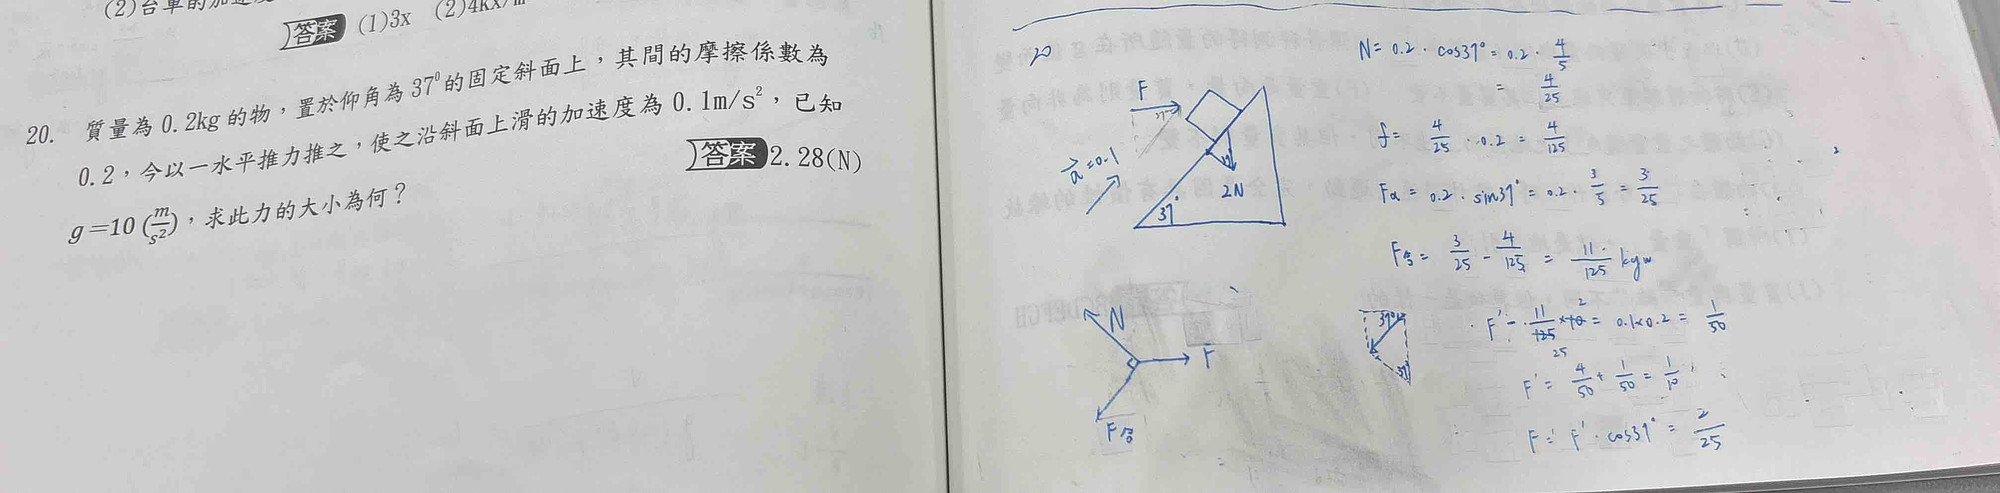 (2)台車的加速度
答案 (1)3x (2)4kx/m
20. 質量為 0.2kg 的物，置於仰角為 37⁰ 的固定斜面上，其間的摩擦係數為
0.2，今以一水平推力推之，使之沿斜面上滑的加速度為 0.1m/s²，已知
g=10 (m/s²)，求此力的大小為何？
答案 2.28(N)
20
F
37°
a=0.1
37°
2N
N
F
F合
N= 0.2 · cos37° = 0.2 · 4/5
= 4/25
f = 4/25 · 0.2 = 4/125
Fa = 0.2 · sin37° = 0.2 · 3/5 = 3/25
F合 = 3/25 - 4/125 = 11/125 kgw
37°
F' - 11/125 × 10 = 0.1×0.2 = 1/50
2
25
F' = 4/50 + 1/50 = 1/10
F = F' · cos37° = 2/25